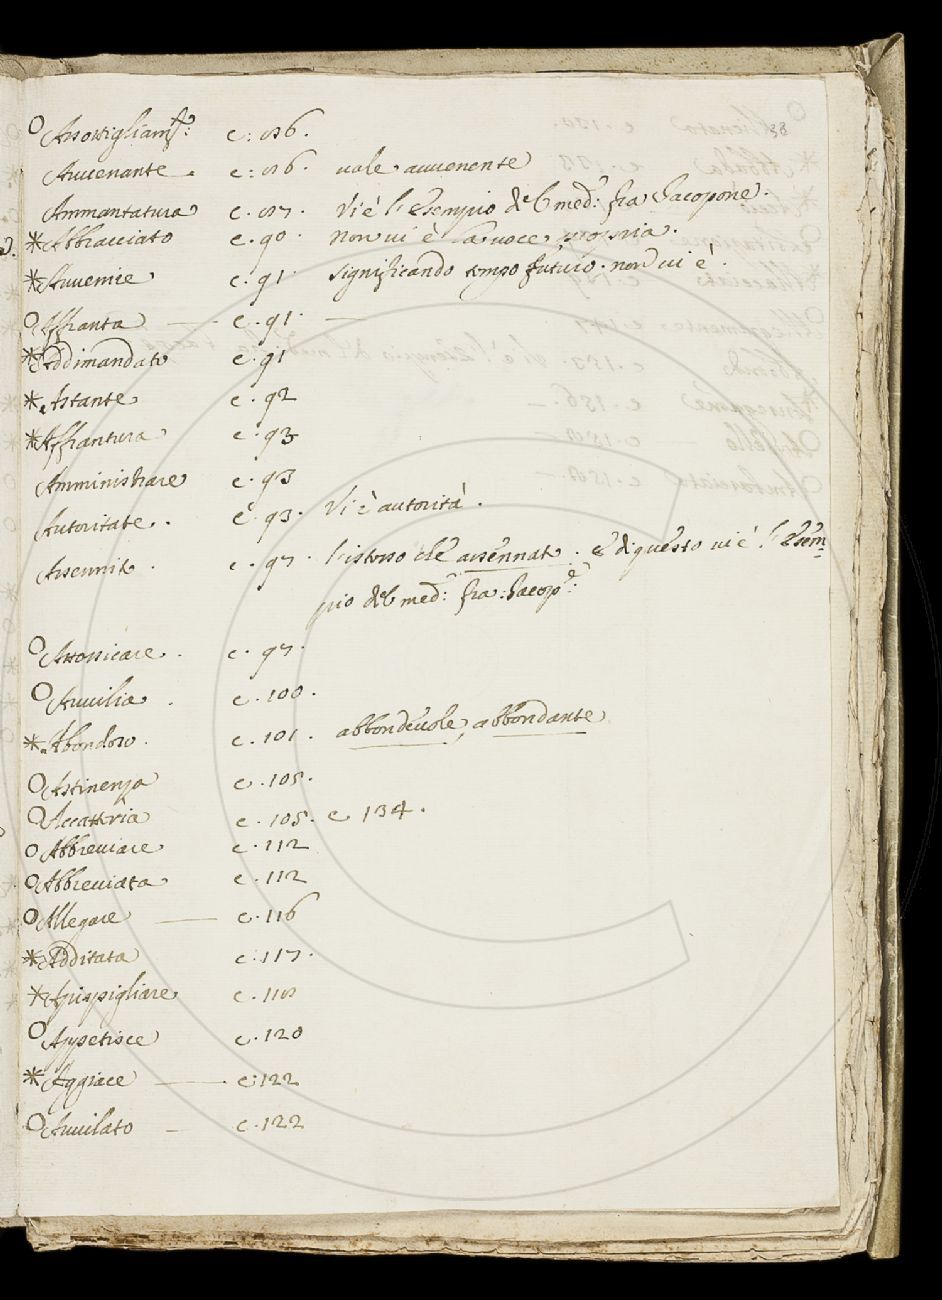 38
O Assottigliam.to: c: 86.
Avvenante. c: 86. vale avvenente
Ammantatura c. 87. Vi è l'Esempio del med:o fra Jacopone.
* Abbracciato c. 90. Non vi è la voce propria.
* Avvenire c. 91 significando tempo futuro. non vi è.
O Affranta — c. 91. —
* Addimandato c. 91
* Astante c. 92
* Affrantura c. 93
Amministrare c. 93
Autoritate. c. 93. Vi è autorità.
Assennit. c. 97. l'istesso che assennat. e di questo vi è l'Esem=
pio del med:o fra: Jacop.e:
O Attossicare. c. 97.
O Avvilia. c. 100.
* Abondoso. c. 101. abbondevole, abbondante
O Astinenza c. 105.
O Accatteria c. 105. e 134.
O Abbreviare c. 112
O Abbreviata c. 112
O Allegare — c. 116
* Additata c. 117.
* Appigliare c. 118
O Appetisce c. 120
* Aggiace — c. 122
O Avvilato — c. 122